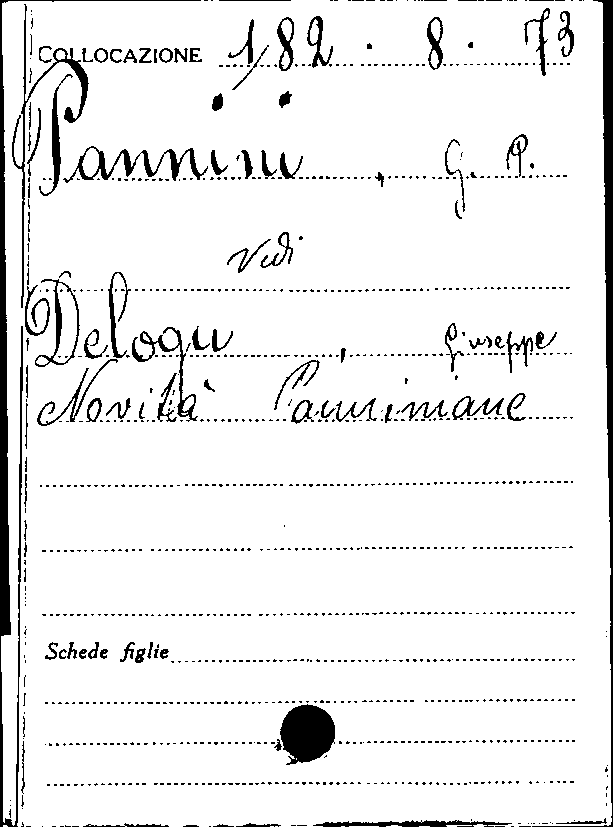 COLLOCAZIONE 182 . 8 . 73
Pannini , G. P.
Vedi
Delogu , Giuseppe
Novità Panniniane
Schede figlie